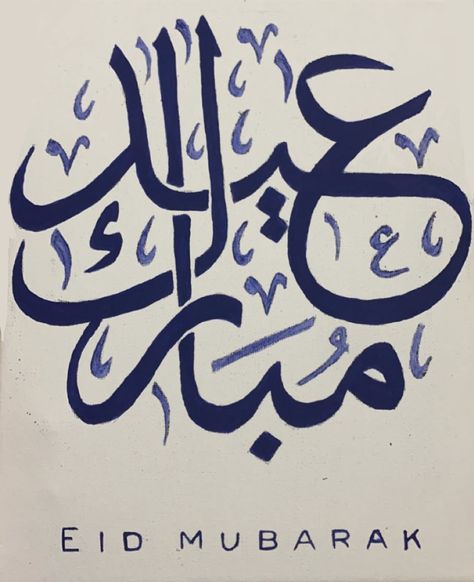 عيد مبارك
EID MUBARAK